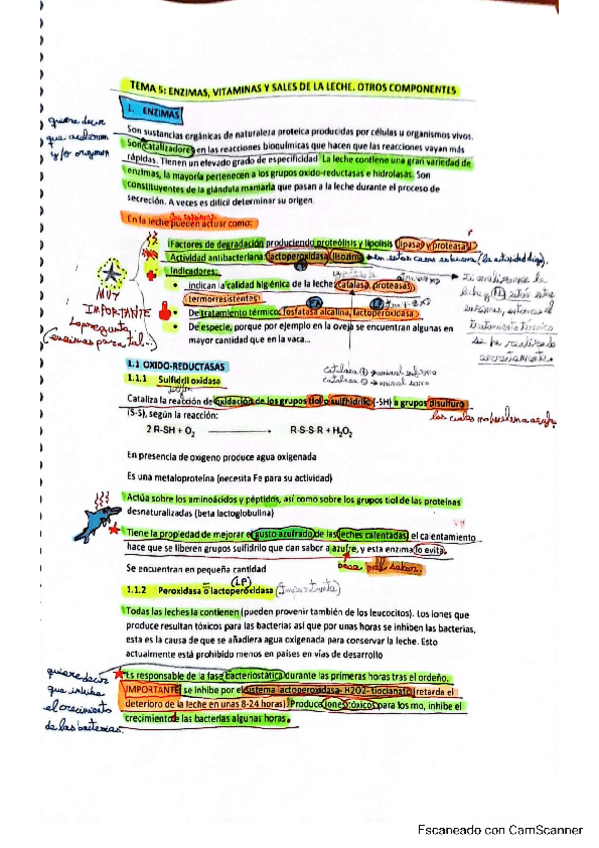 TEMA 5: ENZIMAS, VITAMINAS Y SALES DE LA LECHE. OTROS COMPONENTES
1. ENZIMAS
quiere decir
que aceleran
y/o originan
Son sustancias orgánicas de naturaleza proteica producidas por células u organismos vivos.
Son catalizadores en las reacciones bioquímicas que hacen que las reacciones vayan más
rápidas. Tienen un elevado grado de especificidad La leche contiene una gran variedad de
enzimas, la mayoría pertenecen a los grupos oxido-reductasas e hidrolasas. Son
constituyentes de la glándula mamaria que pasan a la leche durante el proceso de
secreción. A veces es difícil determinar su origen.
En la leche pueden actuar como:
Factores de degradación produciendo proteólisis y lipolisis (lipasas y proteasas)
Actividad antibacteriana: lactoperoxidasa lisozima
Indicadores:
• indican la calidad higiénica de la leche: catalasa, proteasas,
termorresistentes
• De tratamiento térmico: fosfatasa alcalina, lactoperoxidasa
• De especie, porque por ejemplo en la oveja se encuentran algunas en
mayor cantidad que en la vaca...
MUY
IMPORTANTE
Lo pregunta
(enzimas para tal...)
Si analizamos la
leche y
tratamiento térmico
se ha realizado
correctamente.
catalasa + → animal enfermo
catalasa → animal sano
1.1 OXIDO-REDUCTASAS
1.1.1 Sulfidril oxidasa
Cataliza la reacción de oxidación de los grupos tiol o sulfhidrilo (-SH) a grupos disulfuro
(S-S), según la reacción:
los cuales no huelen a azufre
2 R-SH + O2 → R-S-S-R + H2O2
En presencia de oxigeno produce agua oxigenada
Es una metaloproteína (necesita Fe para su actividad)
Actúa sobre los aminoácidos y péptidos, así como sobre los grupos tiol de las proteínas
desnaturalizadas (beta lactoglobulina)
Tiene la propiedad de mejorar el gusto azufrado de las leches calentadas, el calentamiento
hace que se liberen grupos sulfidrilo que dan sabor a azufre, y esta enzima lo evita.
mal sabor
Se encuentran en pequeña cantidad
1.1.2 Peroxidasa o lactoperoxidasa (LP) (Importante)
Todas las leches la contienen (pueden provenir también de los leucocitos). Los iones que
produce resultan tóxicos para las bacterias así que por unas horas se inhiben las bacterias,
esta es la causa de que se añadiera agua oxigenada para conservar la leche. Esto
actualmente está prohibido menos en países en vías de desarrollo
quiere decir
que inhibe
el crecimiento
de las bacterias.
Es responsable de la fase bacteriostática durante las primeras horas tras el ordeño.
IMPORTANTE: se inhibe por el sistema lactoperoxidasa- H2O2- tiocianato (retarda el
deterioro de la leche en unas 8-24 horas). Produce iones tóxicos para los mo, inhibe el
crecimiento de las bacterias algunas horas.
Escaneado con CamScanner